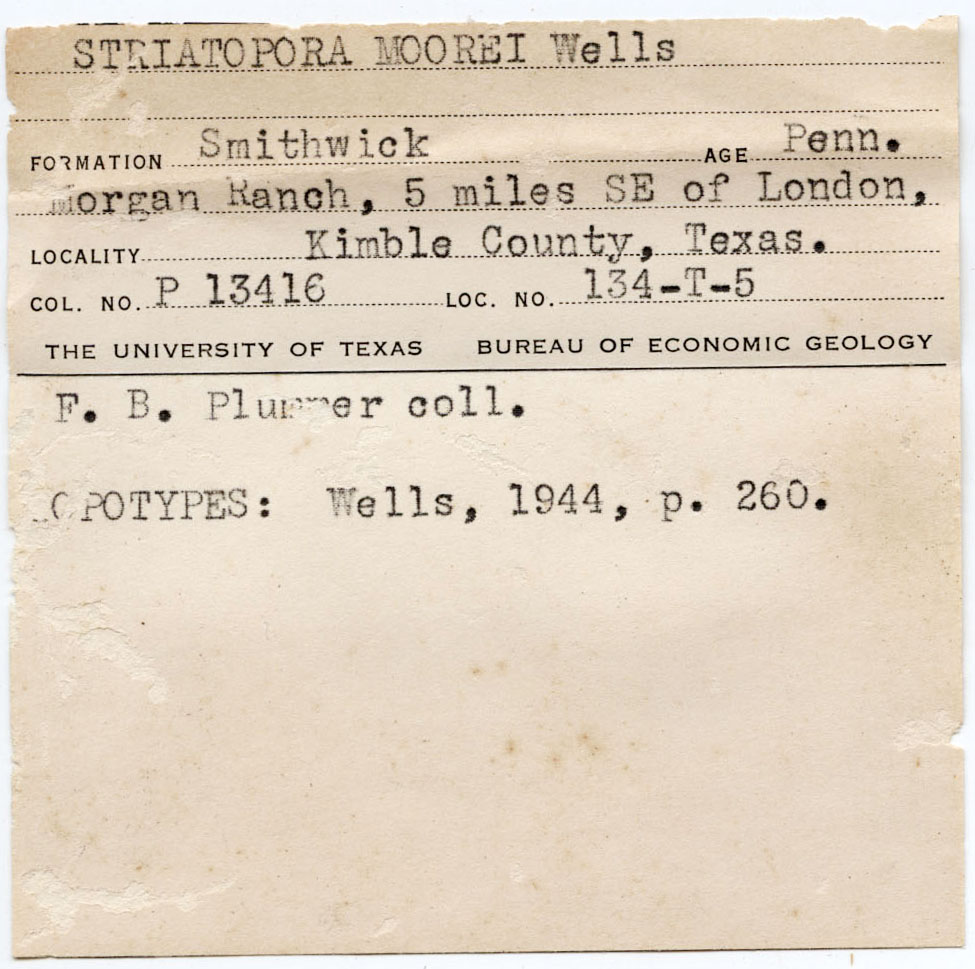 STRIATOPORA MOOREI Wells
FORMATION Smithwick AGE Penn.
Morgan Ranch, 5 miles SE of London,
LOCALITY Kimble County, Texas.
COL. NO. P 13416 LOC. NO. 134-T-5
THE UNIVERSITY OF TEXAS BUREAU OF ECONOMIC GEOLOGY
F. B. Plummer coll.
TOPOTYPES: Wells, 1944, p. 260.